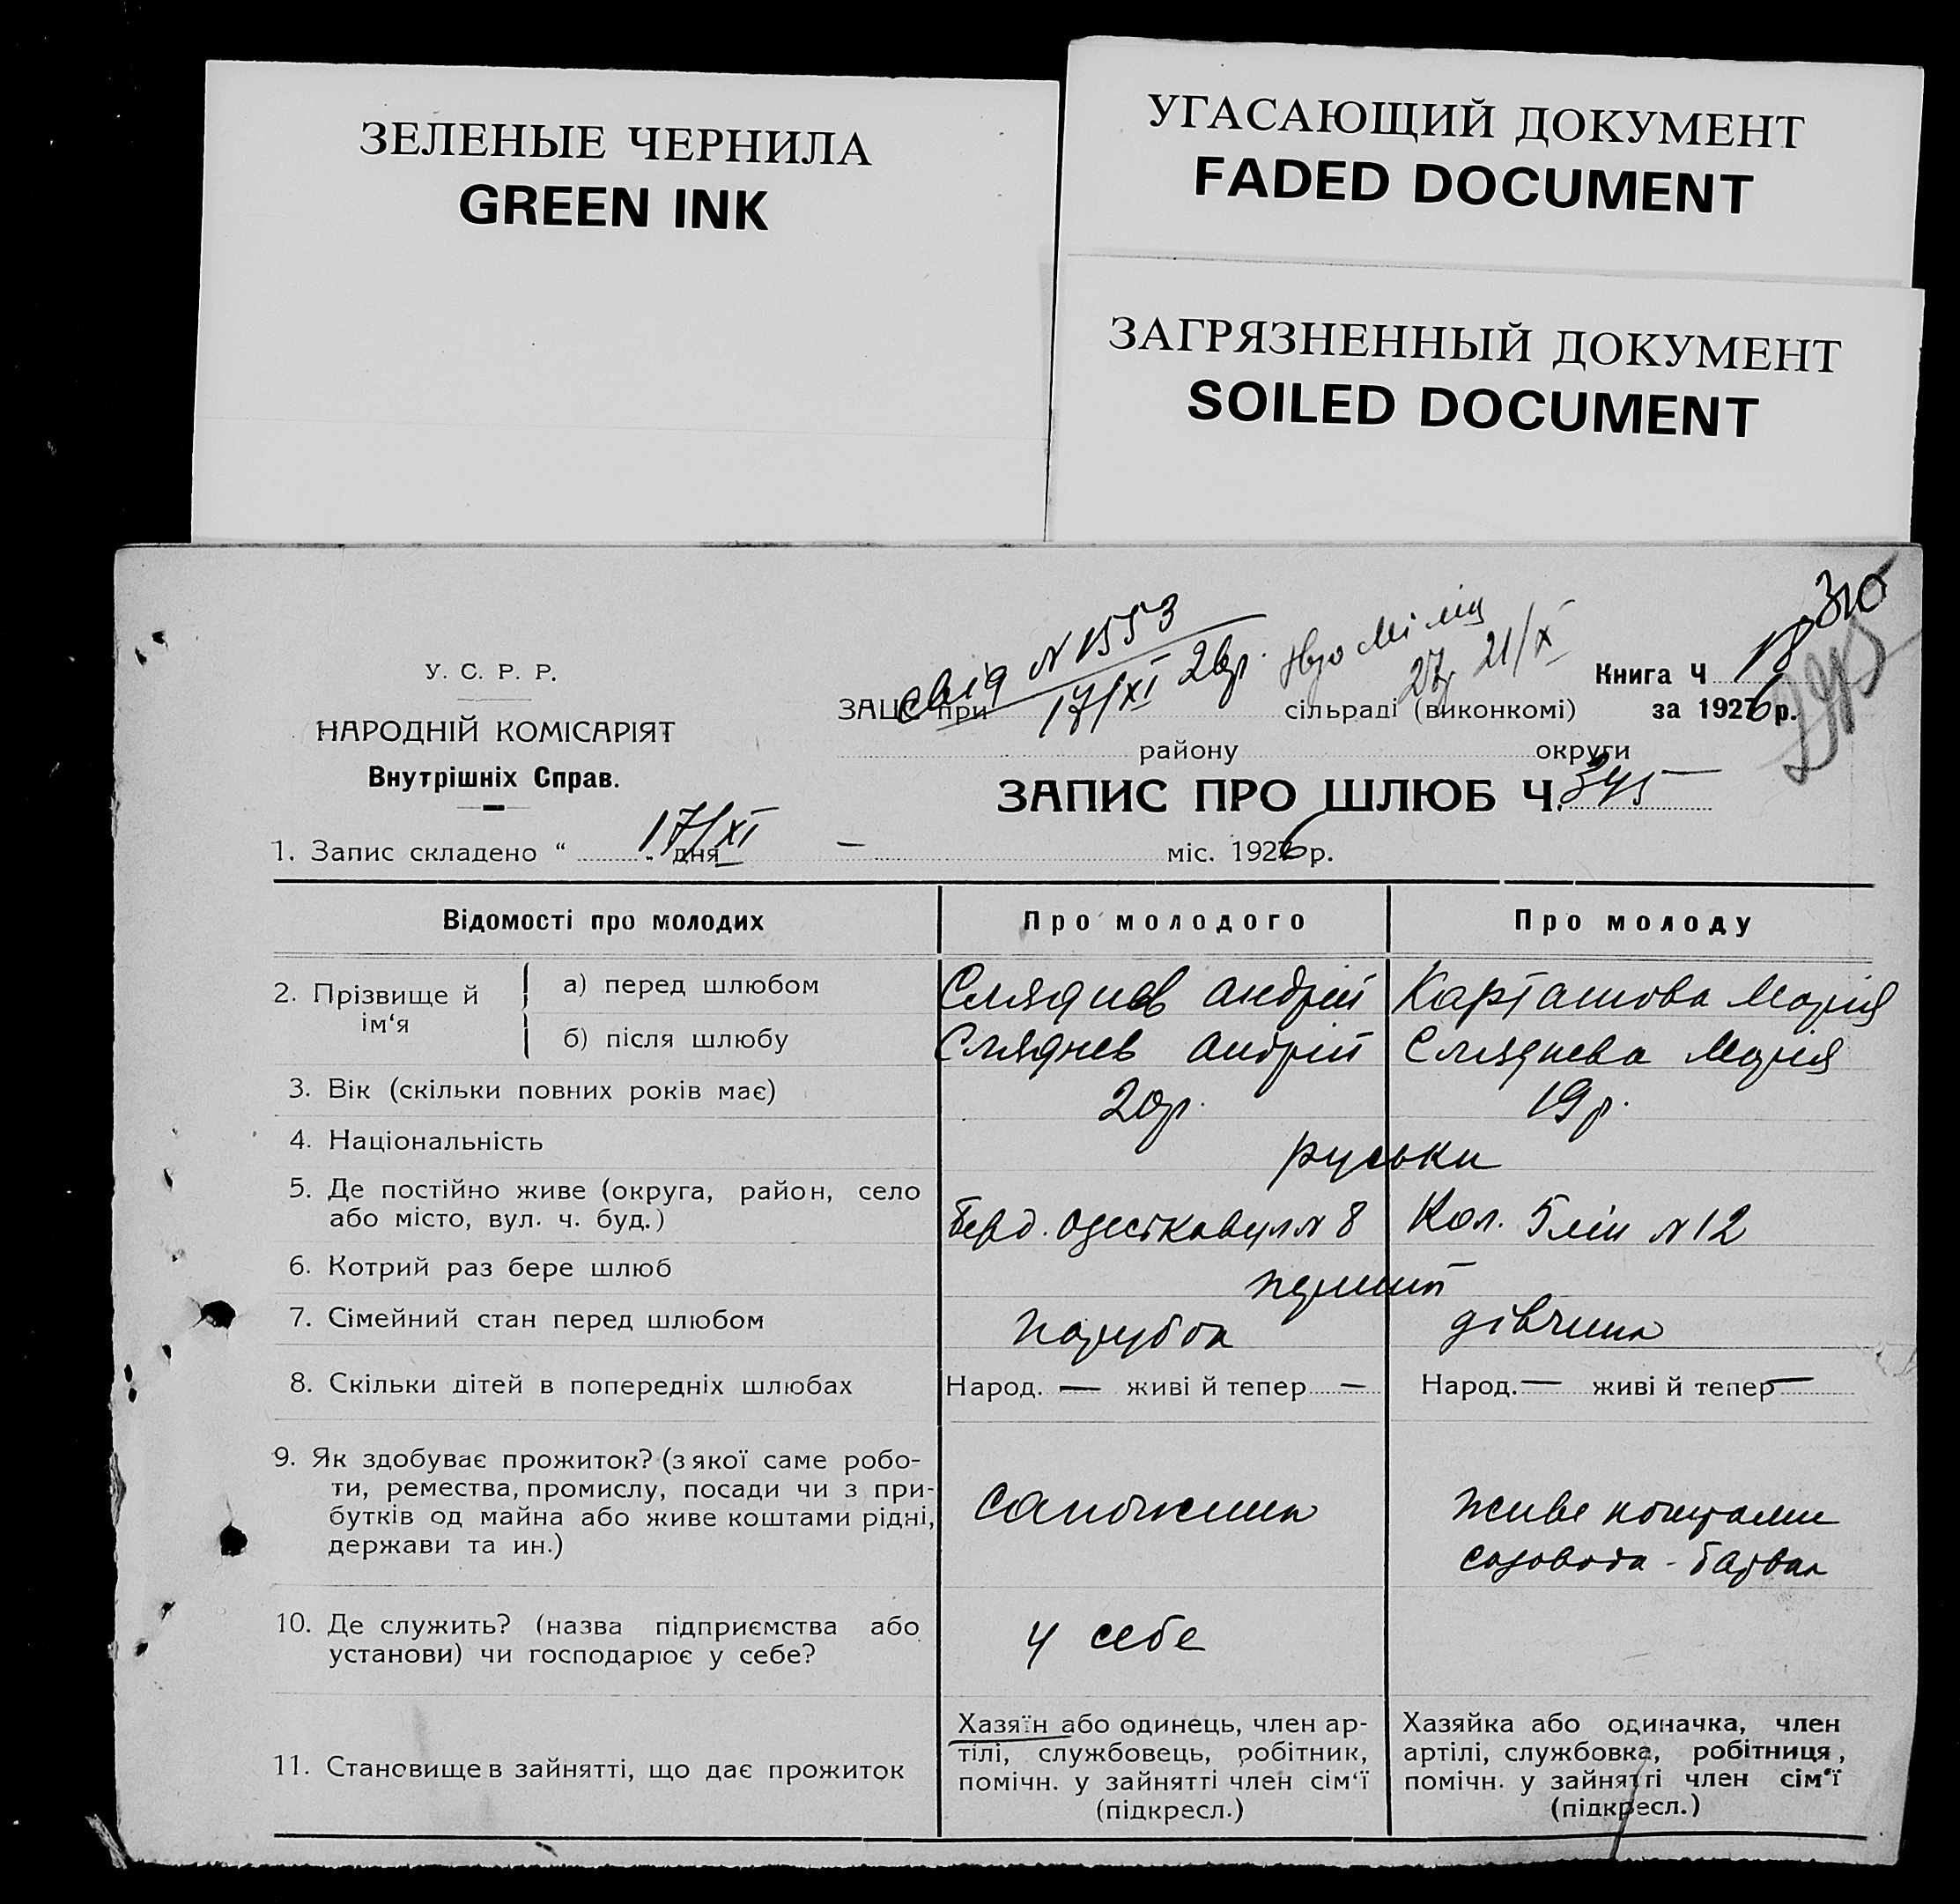 ЗЕЛЕНЫЕ ЧЕРНИЛА
GREEN INK
УГАСАЮЩИЙ ДОКУМЕНТ
FADED DOCUMENT
ЗАГРЯЗНЕННЫЙ ДОКУМЕНТ
SOILED DOCUMENT
У. С. Р. Р.
НАРОДНІЙ КОМІСАРІЯТ
Внутрішніх Справ.
свід N 1553
17/XI 26р.
21/X
Книга Ч 18
ЗАЦС при сільраді (виконкомі) за 1926 р.
району округи
ЗАПИС ПРО ШЛЮБ Ч. 345
1. Запис складено “ 17/XI „ дня — міс. 1926 р.
Відомості про молодих Про молодого Про молоду
2. Прізвище й ім‘я
а) перед шлюбом Сляднєв Андрій Карташова Марія
б) після шлюбу Сляднев Андрій Сляднева Марія
3. Вік (скільки повних років має) 20р. 19р.
4. Національність руськи
5. Де постійно живе (округа, район, село
або місто, вул. ч. буд.) Берд. Одеськавул N 8 Кол. 5 лін N 12
6. Котрий раз бере шлюб перший
7. Сімейний стан перед шлюбом парубок дівчина
8. Скільки дітей в попередніх шлюбах Народ. — живі й тепер — Народ. — живі й тепер —
9. Як здобуває прожиток? (з якої саме робо-
ти, ремества, промислу, посади чи з при-
бутків од майна або живе коштами рідні,
держави та ин.)
сапожник
живе коштами
садовода - батька
10. Де служить? (назва підприємства або
установи) чи господарює у себе?
у себе
11. Становище в зайнятті, що дає прожиток
Хазяїн або одинець, член ар-
тілі, службовець, робітник,
помічн. у зайнятті член сім‘ї
(підкресл.)
Хазяйка або одиначка, член
артілі, службовка, робітниця,
помічн. у зайнятті член сім‘ї
(підкресл.)